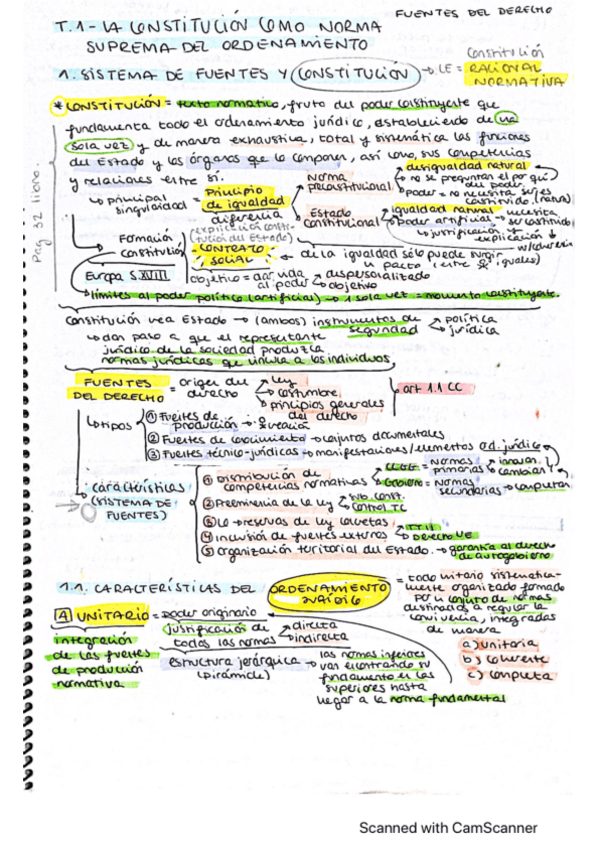 FUENTES DEL DERECHO
T.1- LA CONSTITUCIÓN COMO NORMA
SUPREMA DEL ORDENAMIENTO
1. SISTEMA DE FUENTES Y CONSTITUCIÓN → CE = Constitución RACIONAL NORMATIVA
*CONSTITUCIÓN = texto normativo, fruto del poder constituyente que
fundamenta todo el ordenamiento jurídico, estableciendo de una
sola vez y de manera exhaustiva, total y sistemática las funciones
del Estado y los órganos que lo componen, así como, sus competencias
y relaciones entre sí.
Pag 32 libro.
→ principal singularidad = Principio de igualdad
diferencia
Norma preconstitucional
desigualdad natural
→ no se preguntan el por qué del poder
poder = no necesita ser constituido (natural)
Estado constitucional
igualdad natural
poder artificial → necesita ser constituido
→ justificación y explicación
Formación constitución
Europa S. XVIII
(explicación constitución del Estado)
CONTRATO SOCIAL
→ de la igualdad sólo puede surgir
un pacto (entre iguales)
objetivo = dar vida al poder
despersonalizado
objetivo
límites al poder político (artificial) → 1 sola vez = momento constituyente.
Constitución crea Estado → (ambos) instrumentos de seguridad
política
jurídica
→ dan paso a que el representante
jurídico de la sociedad produzca
normas jurídicas que vincula a los individuos
FUENTES DEL DERECHO = origen del derecho
ley
costumbre
principios generales del derecho
art 1.1 CC
→ tipos
① Fuentes de producción → creación
② Fuentes de conocimiento → conjuntos documentales
③ Fuentes técnico-jurídicas → manifestaciones/elementos ord. jurídico
características (SISTEMA DE FUENTES)
① Distribución de competencias normativas
CCGG = Normas primarias
innovan
cambian
Gobierno = Normas secundarias → completan
② Preeminencia de la ley
sub. const.
control TC
③ LO → reservas de ley concretas
④ inclusión de fuentes externas
TTII
Derecho UE
⑤ Organización territorial del Estado. → garantía al derecho de autogobierno
1.1. CARACTERÍSTICAS DEL ORDENAMIENTO JURÍDICO
= todo unitario sistemáticamente organizado formado
por un conjunto de normas
destinadas a regular la
convivencia, integradas
de manera
a) unitaria
b) coherente
c) completa
A UNITARIO = poder originario
integración
de las fuentes
de producción
normativa
justificación de todas las normas
directa
indirecta
estructura jerárquica (pirámide)
→ las normas inferiores
van encontrando su
fundamento en las
superiores hasta
llegar a la norma fundamental
Scanned with CamScanner